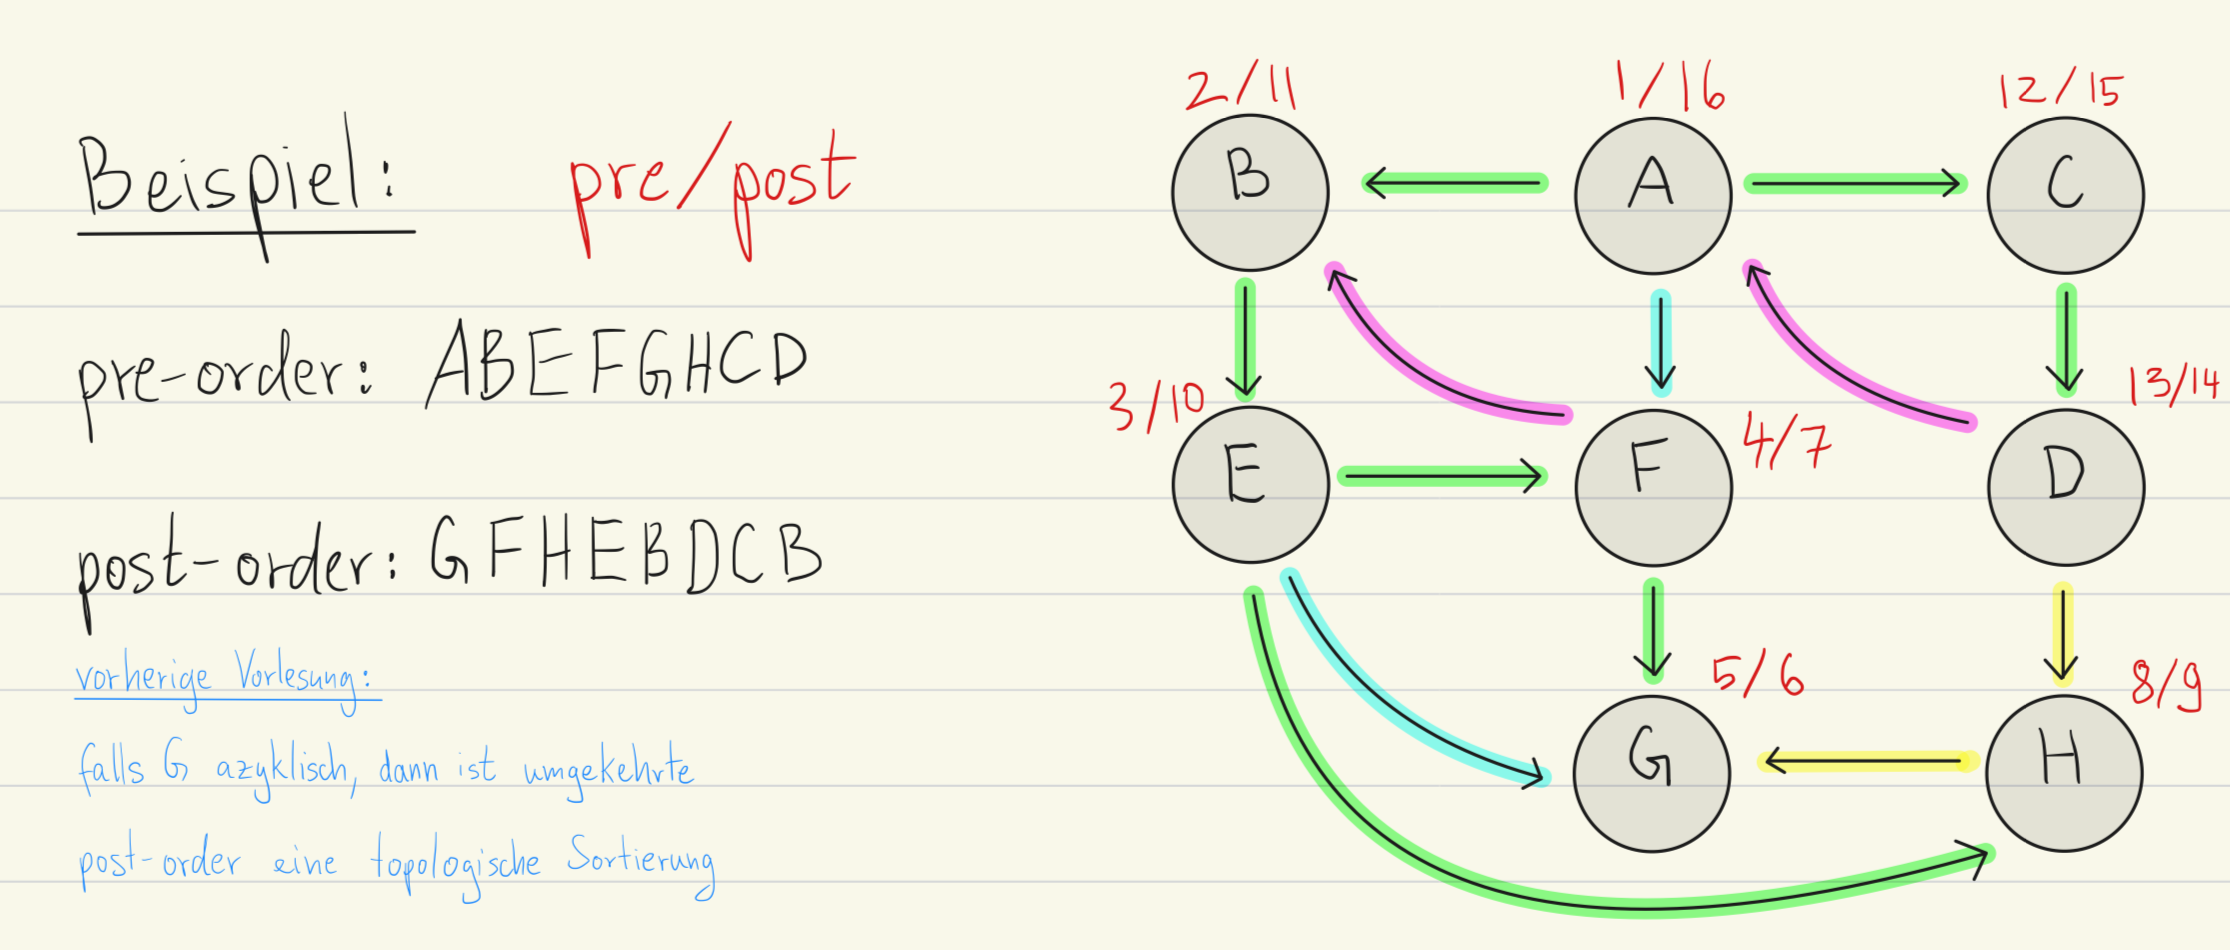 Beispiel: pre/post
pre-order: ABEFGHCD
post-order: GFHEBDCB
vorherige Vorlesung:
falls G azyklisch, dann ist umgekehrte
post-order eine topologische Sortierung
2/11 1/16 12/15
B A C
3/10 4/7 13/14
E F D
5/6 8/9
G H